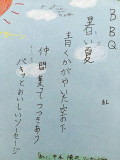 BBQ
暑い夏
青くかがやいた空の下
仲間集って、つつきあう
パキッとおいしいソーセージ